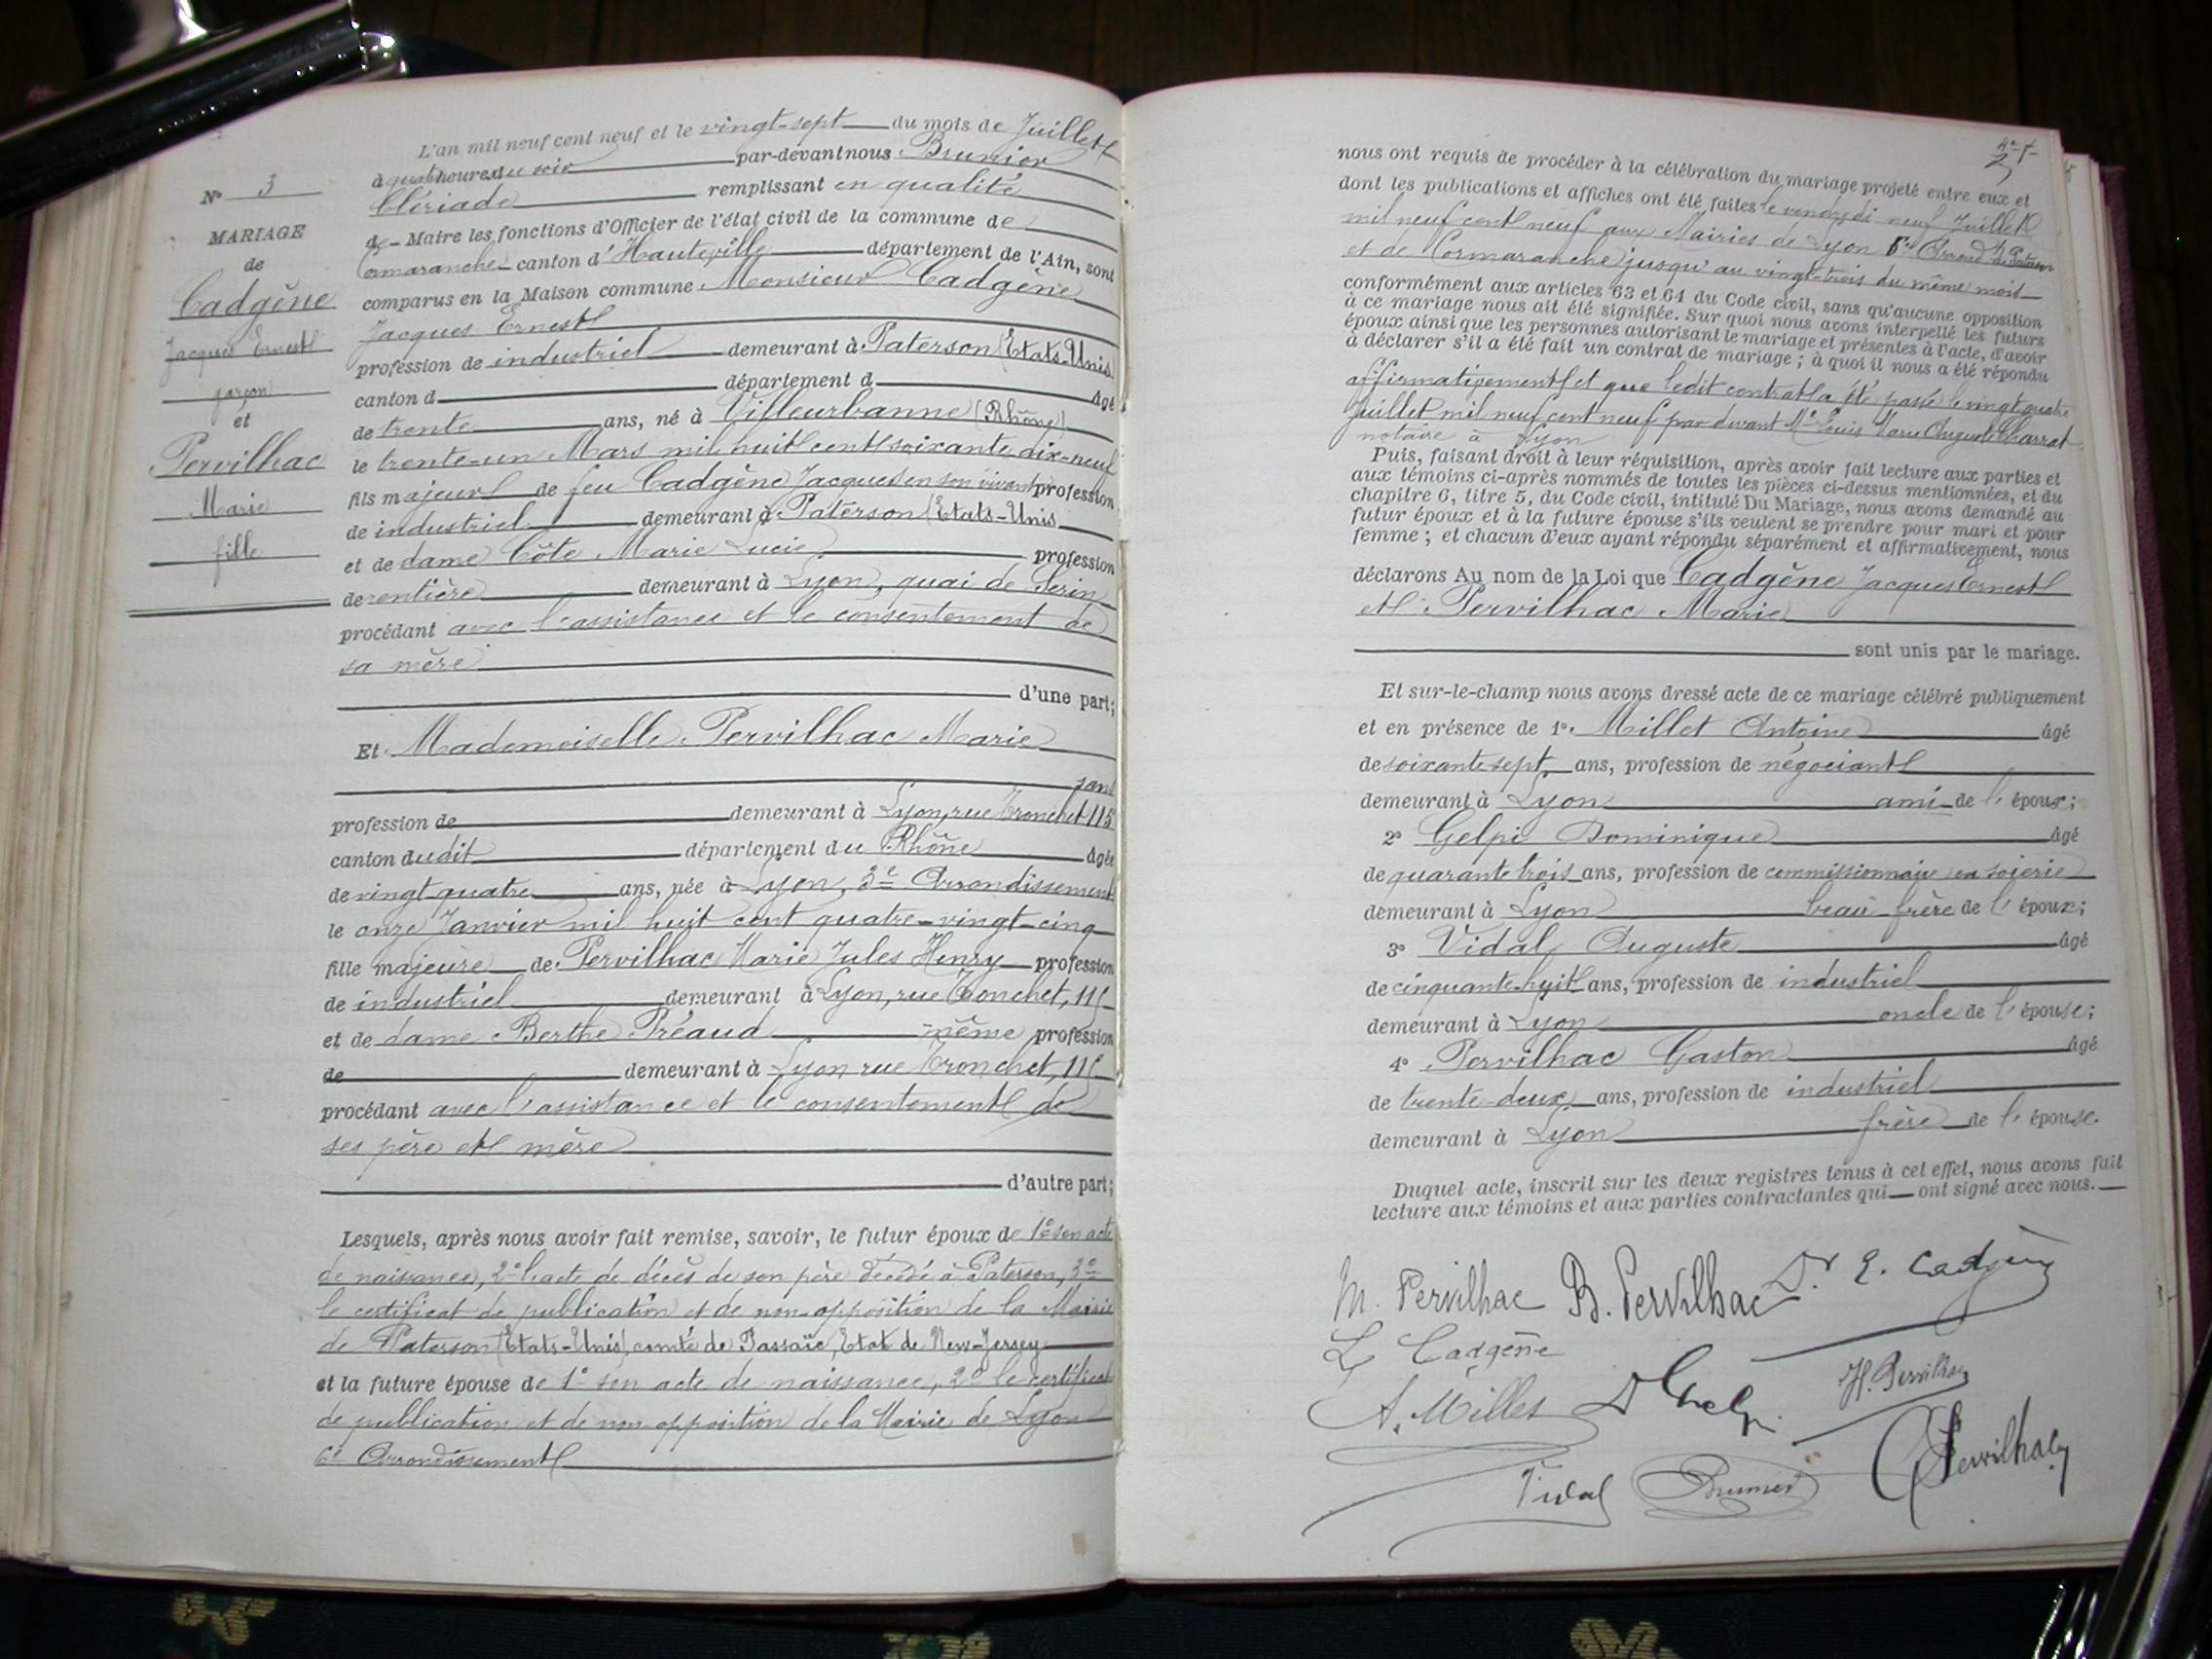 L'an mil neuf cent neuf et le vingt-sept du mois de Juillet
à quatre heures du soir par-devant nous Brunier
Clériade remplissant en qualité
de Maire les fonctions d'Officier de l'état civil de la commune de
Cormaranche canton d'Hauteville département de l'Ain, sont
comparus en la Maison commune Monsieur Cadgène
Jacques Ernest
profession de industriel demeurant à Paterson (Etats-Unis)
canton d département d âgé
de trente ans, né à Villeurbanne (Rhône)
le trente-un Mars mil huit cent soixante dix-neuf
fils majeur de feu Cadgène Jacques en son vivant profession
de industriel demeurant à Paterson (Etats-Unis
et de dame Côte Marie Lucie profession
de rentière demeurant à Lyon, quai de Serin
procédant avec l'assistance et le consentement de
sa mère
d'une part;
Et Mademoiselle Pervilhac Marie
sans
profession de demeurant à Lyon, rue Tronchet 115
canton dudit département du Rhône âgée
de vingt quatre ans, née à Lyon, 3e Arrondissement
le onze Janvier mil huit cent quatre-vingt-cinq
fille majeure de Pervilhac Marie Jules Henry profession
de industriel demeurant à Lyon, rue Tronchet, 115
et de dame Berthe Préaud même profession
de demeurant à Lyon rue Tronchet, 115
procédant avec l'assistance et le consentement de
ses père et mère
d'autre part;
Lesquels, après nous avoir fait remise, savoir, le futur époux de 1° son acte
de naissance, 2° l'acte de décès de son père décédé à Paterson, 3°
le certificat de publication et de non-opposition de la Mairie
de Paterson (Etats-Unis), comté de Passaïc, Etat de New-Jersey
et la future épouse de 1° son acte de naissance, 2° le certificat
de publication et de non opposition de la Mairie de Lyon
6e Arrondissement
N° 3
MARIAGE
de
Cadgène
Jacques Ernest
garçon
et
Pervilhac
Marie
fille
nous ont requis de procéder à la célébration du mariage projeté entre eux et
dont les publications et affiches ont été faites le vendredi neuf Juillet
mil neuf cent neuf aux Mairies de Lyon
et de Cormaranche jusqu'au vingt-trois du même mois
conformément aux articles 63 et 64 du Code civil, sans qu'aucune opposition
à ce mariage nous ait été signifiée. Sur quoi nous avons interpellé les futurs
époux ainsi que les personnes autorisant le mariage et présentes à l'acte, d'avoir
à déclarer s'il a été fait un contrat de mariage; à quoi il nous a été répondu
affirmativement et que ledit contrat a été passé le vingt quatre
Juillet mil neuf cent neuf par devant Me Louis Marie Auguste Charrat
notaire à Lyon
Puis, faisant droit à leur réquisition, après avoir fait lecture aux parties et
aux témoins ci-après nommés de toutes les pièces ci-dessus mentionnées, et du
chapitre 6, titre 5, du Code civil, intitulé Du Mariage, nous avons demandé au
futur époux et à la future épouse s'ils veulent se prendre pour mari et pour
femme; et chacun d'eux ayant répondu séparément et affirmativement, nous
déclarons Au nom de la Loi que Cadgène Jacques Ernest
et Pervilhac Marie
sont unis par le mariage.
Et sur-le-champ nous avons dressé acte de ce mariage célébré publiquement
et en présence de 1° Millet Antoine âgé
de soixante sept ans, profession de négociant
demeurant à Lyon ami de l'époux;
2° Gelpi Dominique âgé
de quarante trois ans, profession de commissionnaire en soierie
demeurant à Lyon beau-frère de l'époux;
3° Vidal Auguste âgé
de cinquante-huit ans, profession de industriel
demeurant à Lyon oncle de l'épouse;
4° Pervilhac Gaston âgé
de trente-deux ans, profession de industriel
demeurant à Lyon frère de l'épouse.
Duquel acte, inscrit sur les deux registres tenus à cet effet, nous avons fait
lecture aux témoins et aux parties contractantes qui ont signé avec nous.
M. Pervilhac B. Pervilhac E. Cadgène
L Cadgène
A. Millet D Gelpi H. Pervilhac
Vidal Brunier G Pervilhac